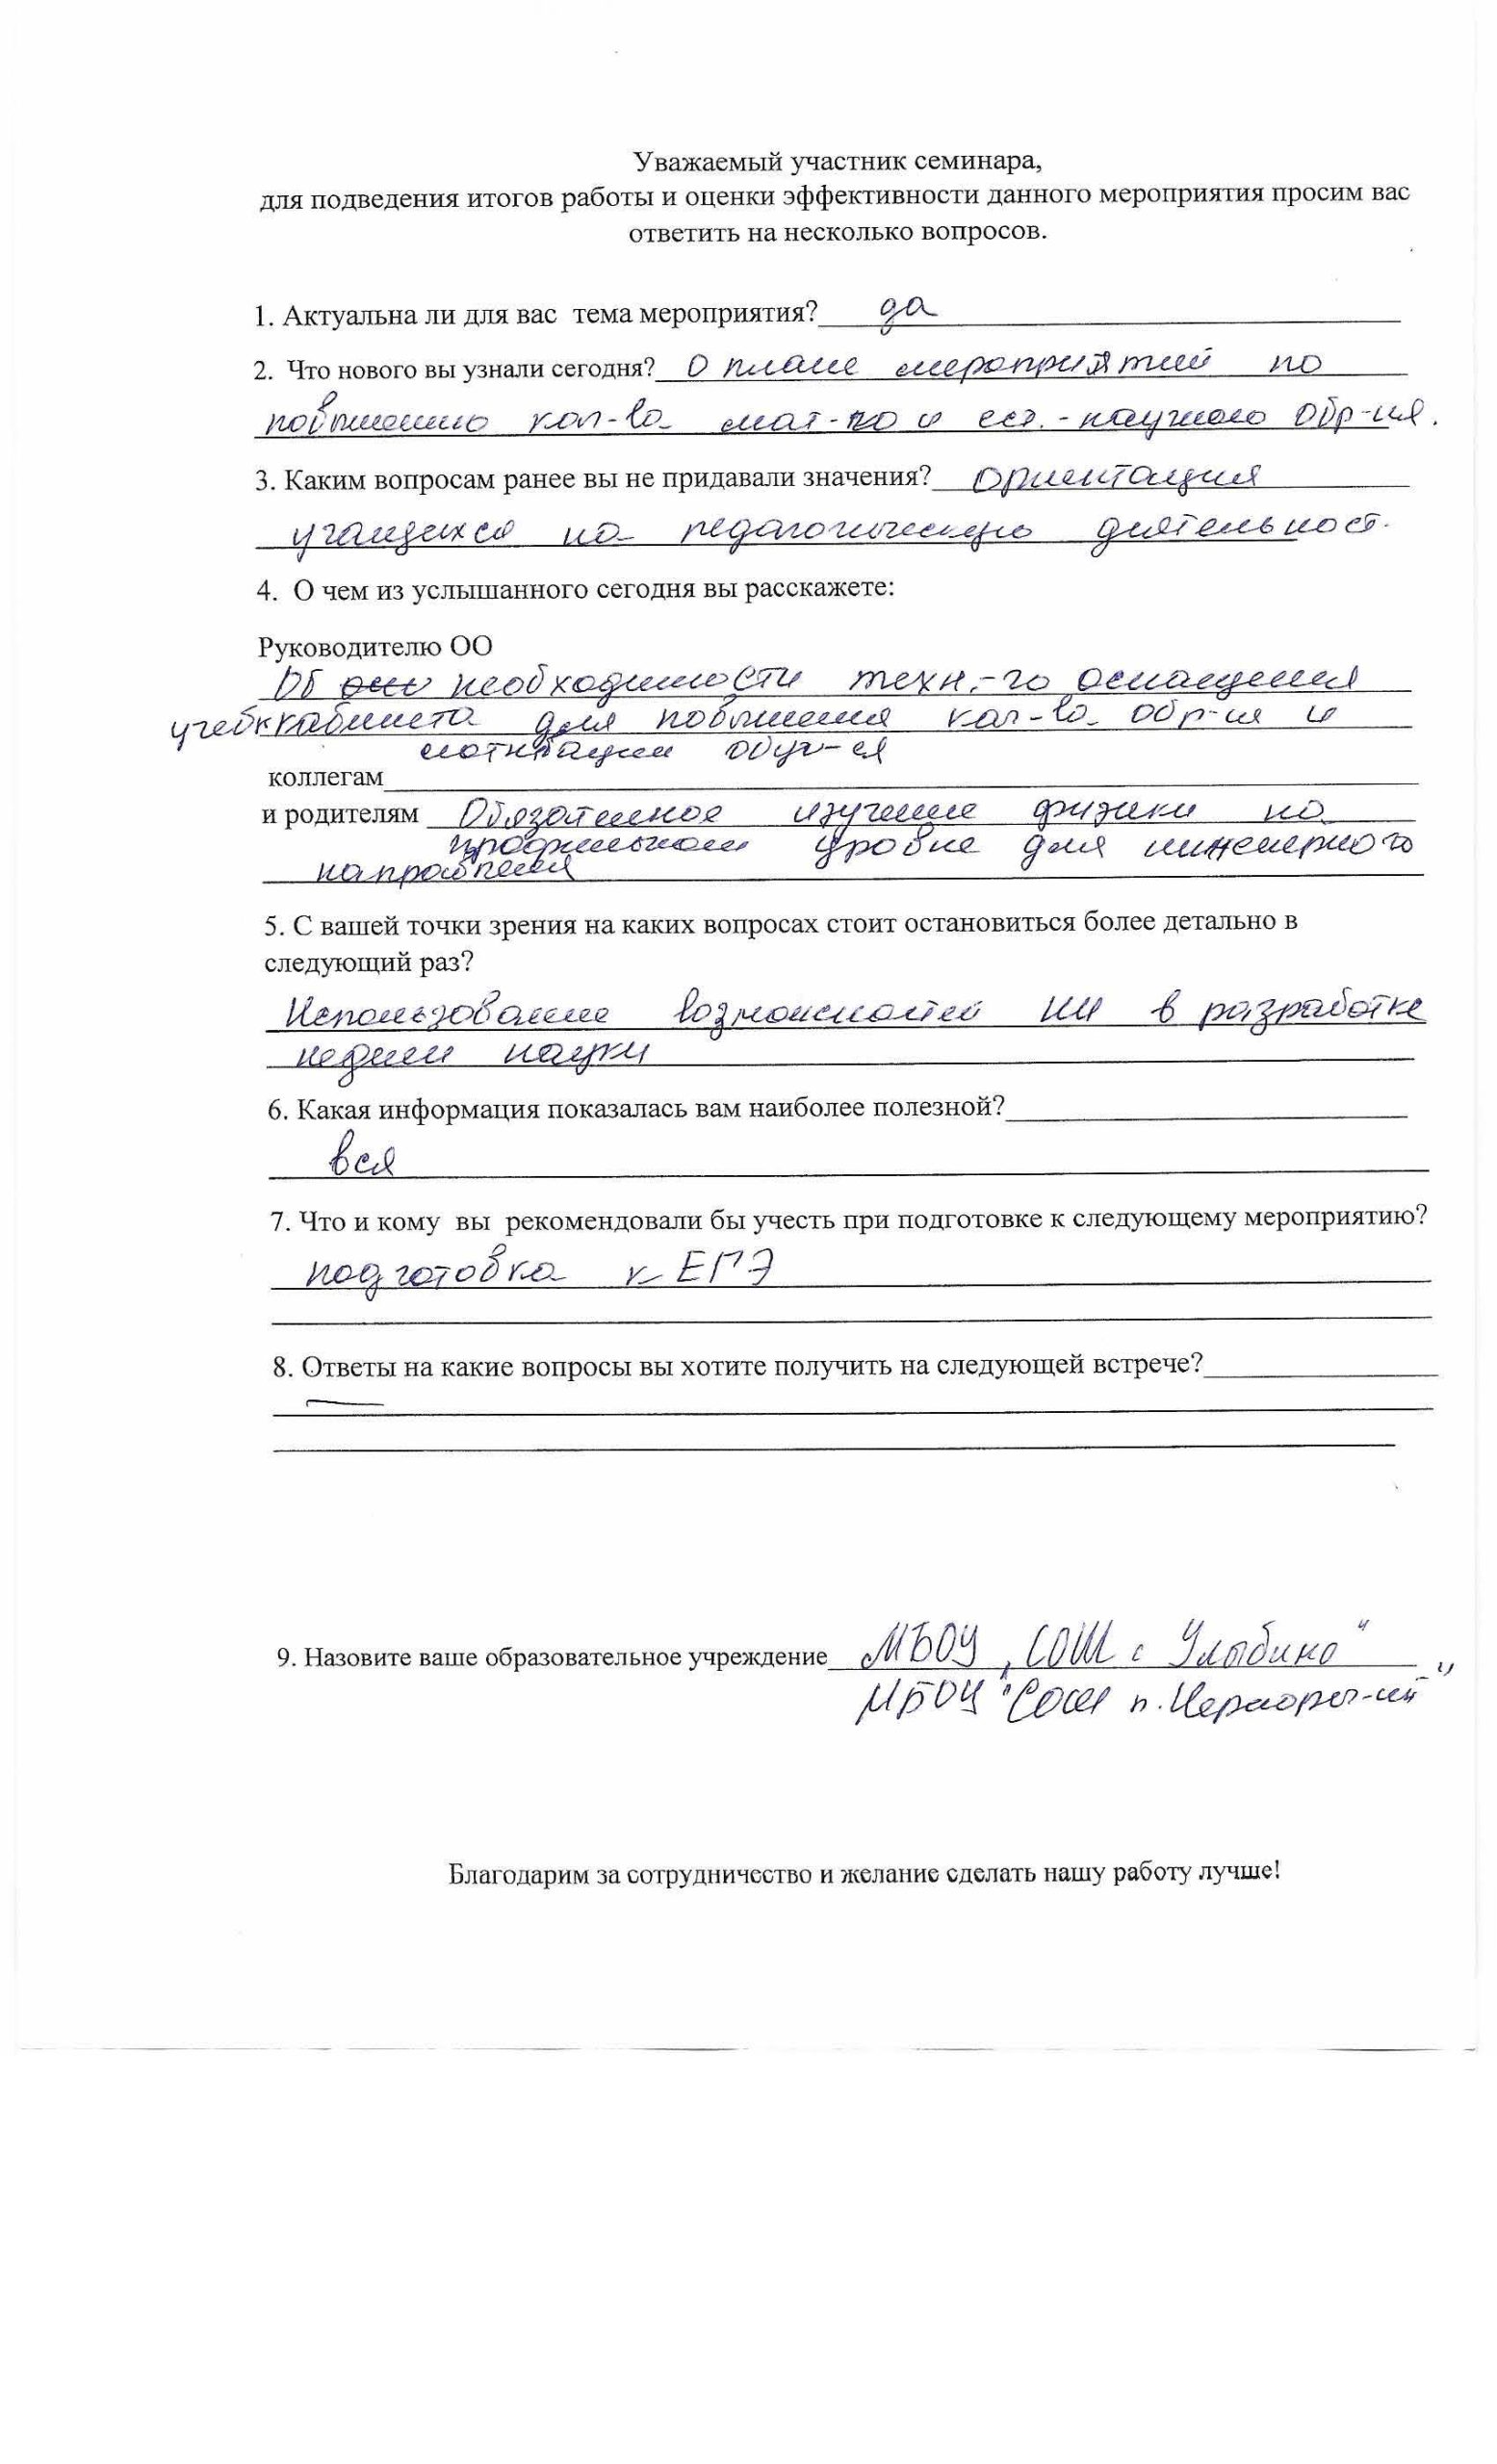 Уважаемый участник семинара,
для подведения итогов работы и оценки эффективности данного мероприятия просим вас
ответить на несколько вопросов.
1. Актуальна ли для вас тема мероприятия? да
2. Что нового вы узнали сегодня? О плане мероприятий по
повышению кол-ва мат-го и ест.-научного обр-ия.
3. Каким вопросам ранее вы не придавали значения? ориентация
учащихся на педагогическую деятельност.
4. О чем из услышанного сегодня вы расскажете:
Руководителю ОО
Об необходимости техн.-го оснащения
учеб кабинета для повышения кол-ва обр-ия и
мотивации обуч-ся
коллегам
и родителям Обязательное изучение физики на
профильном уровне для инженерного
направления
5. С вашей точки зрения на каких вопросах стоит остановиться более детально в
следующий раз?
Использование возможностей ИИ в разработке
недели науки
6. Какая информация показалась вам наиболее полезной?
вся
7. Что и кому вы рекомендовали бы учесть при подготовке к следующему мероприятию?
подготовка к ЕГЭ
8. Ответы на какие вопросы вы хотите получить на следующей встрече?
—
9. Назовите ваше образовательное учреждение МБОУ „СОШ с Улыбино"
МБОУ "Сош п.
Благодарим за сотрудничество и желание сделать нашу работу лучше!